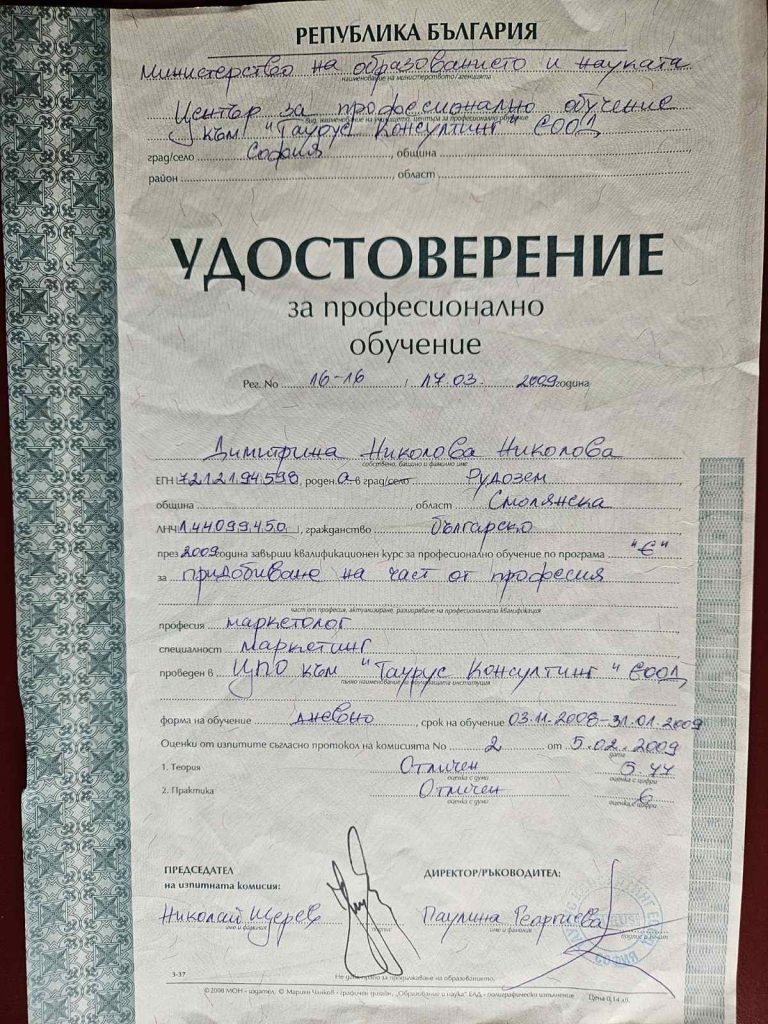 РЕПУБЛИКА БЪЛГАРИЯ
Министерство на образованието и науката
наименование на министерството/агенцията
Център за професионално обучение
вид, наименование на училището, центъра за професионално обучение
към "Таурус Консултинг" ЕООД
град/село София, община
район, област
УДОСТОВЕРЕНИЕ
за професионално
обучение
Рег. No 16-16 / 17.03. 2009 година
Димитрина Николова Николова
собствено, бащино и фамилно име
ЕГН 7212194598, роден а в град/село Рудозем
община, област Смолянска
ЛНЧ 144099450, гражданство българско
през 2009 година завърши квалификационен курс за професионално обучение по програма "Е"
за придобиване на част от професия
част от професия, актуализиране, разширяване на професионалната квалификация
професия маркетолог
специалност маркетинг
проведен в ЦПО към "Таурус Консултинг" ЕООД
пълно наименование на обучаващата институция
форма на обучение дневно срок на обучение 03.11.2008-31.01.2009
Оценки от изпитите съгласно протокол на комисията No 2 от 5.02.2009
дата
1. Теория Отличен 5.77
оценка с думи оценка с цифри
2. Практика Отличен 6
оценка с думи оценка с цифри
ПРЕДСЕДАТЕЛ ДИРЕКТОР/РЪКОВОДИТЕЛ:
на изпитната комисия:
Николай Щерев Паулина Георгиева
име и фамилия подпис име и фамилия подпис и печат
СОФИЯ
3-37
Не дава право за продължаване на образованието.
©2008 МОН - издател, © Мариян Чанков - графичен дизайн, „Образование и наука" ЕАД - полиграфическо изпълнение Цена 0,14 лв.